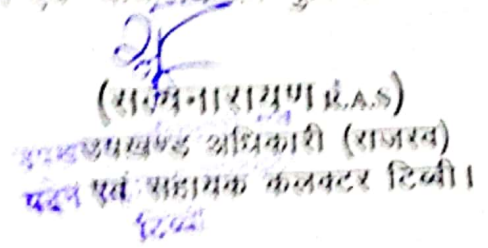 (सत्यनारायण R.A.S)
उपखण्ड अधिकारी (राजस्व)
पदेन एवं सहायक कलक्टर टिब्बी।
टिब्बी